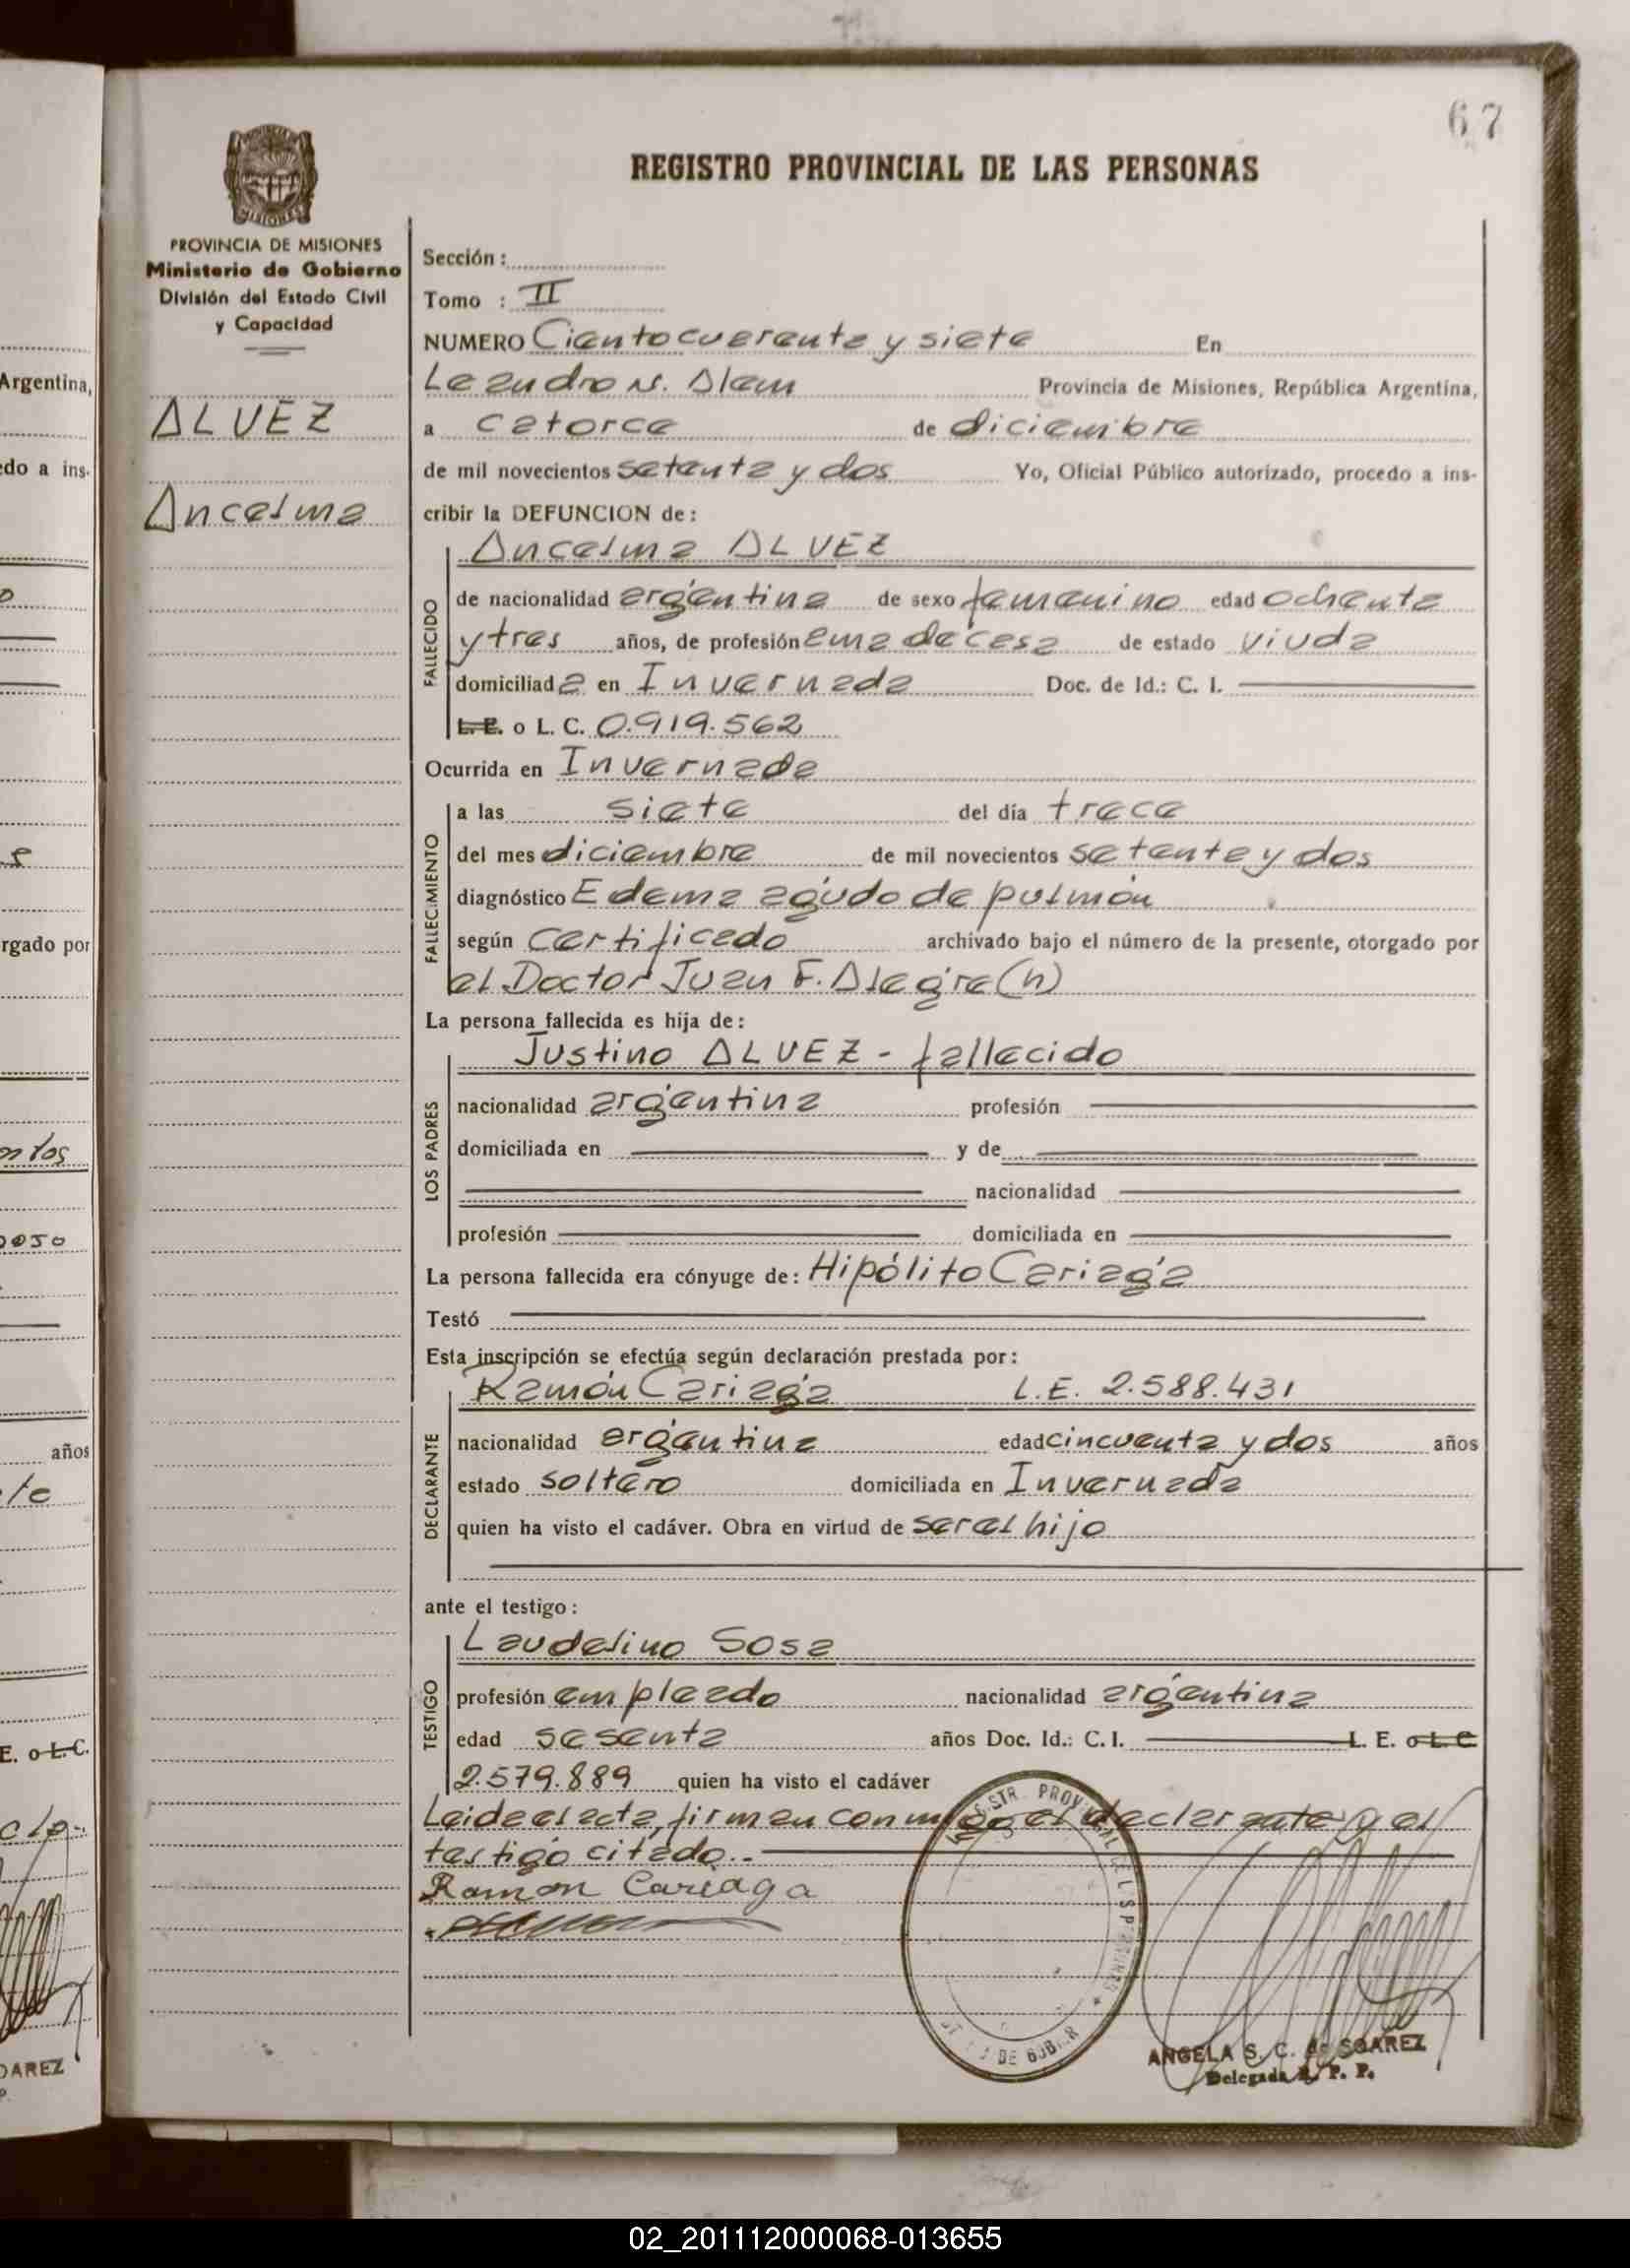 67
REGISTRO PROVINCIAL DE LAS PERSONAS
PROVINCIA DE MISIONES
Ministerio de Gobierno
División del Estado Civil
y Capacidad
ALVEZ
Ancelma
Sección :
Tomo : II
NUMERO Ciento cuarenta y siete En
Leandro N. Alem Provincia de Misiones, República Argentina,
a catorce de diciembre
de mil novecientos setenta y dos Yo, Oficial Público autorizado, procedo a ins-
cribir la DEFUNCION de :
FALLECIDO
Ancelma ALVEZ
de nacionalidad argentina de sexo femenino edad ochenta
y tres años, de profesión ama de casa de estado viuda
domiciliada en Invernada Doc. de Id.: C. I.
L. E. o L. C. 0.919.562
Ocurrida en Invernada
FALLECIMIENTO
a las siete del día trece
del mes diciembre de mil novecientos setenta y dos
diagnóstico Edema agudo de pulmón
según certificado archivado bajo el número de la presente, otorgado por
el Doctor Juan F. Alegre (h)
La persona fallecida es hija de :
LOS PADRES
Justino ALVEZ - fallecido
nacionalidad argentina profesión
domiciliada en y de
nacionalidad
profesión domiciliada en
La persona fallecida era cónyuge de : Hipólito Cariaga
Testó
Esta inscripción se efectúa según declaración prestada por :
DECLARANTE
Ramón Cariaga L.E. 2.588.431
nacionalidad argentina edad cincuenta y dos años
estado soltero domiciliada en Invernada
quien ha visto el cadáver. Obra en virtud de ser el hijo
ante el testigo :
TESTIGO
Laudelino Sosa
profesión empleado nacionalidad argentina
edad sesenta años Doc. Id.: C. I. L. E. o L C
2.579.889 quien ha visto el cadáver
Leida el acta, firman conmigo el declarante y el
testigo citado.-
Ramon Cariaga
ANGELA S. C. de SOAREZ
Delegada R. P. P.
Argentina,
do a ins-
rgado por
años
E. o L. C.
OAREZ
02_201112000068-013655